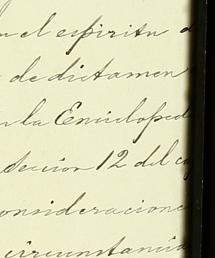 el espiritu
de dictamen
la Encicloped
seccion 12 del
onsideracione
circunstancia